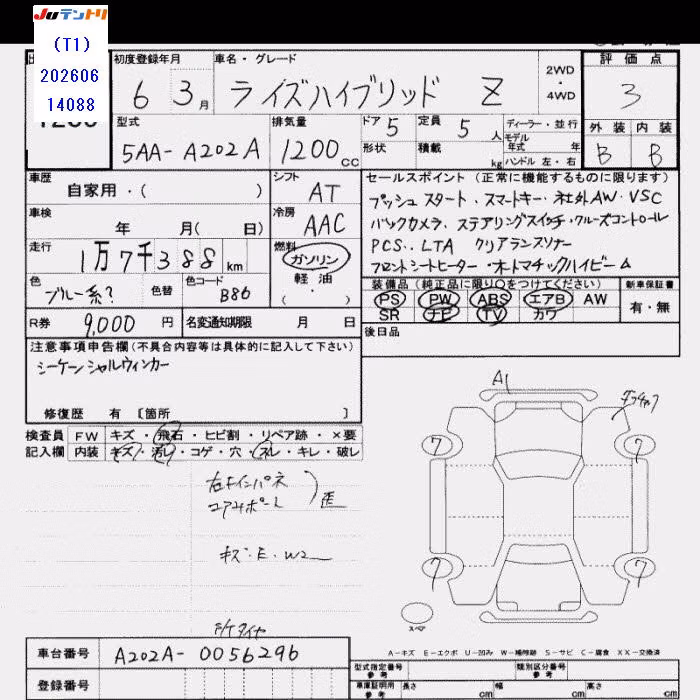 Juテントリ
(T1)
202606
14088
初度登録年月 車名・グレード 2WD・4WD 評価点
6 3月 ライズハイブリッド Z 3
型式 排気量 ドア 5 定員 5人 ディーラー・並行 外装 内装
5AA-A202A 1200cc 形状 積載 kg モデル年式 年 ハンドル 左・右 B B
車歴 自家用・( ) シフト AT セールスポイント (正常に機能するものに限ります)
プッシュスタート・スマートキー・社外AW・VSC
車検 年 月( 日) 冷房 AAC バックカメラ・ステアリングスイッチ・クルーズコントロール
走行 1万7千388km 燃料 ガソリン PCS・LTA クリアランスソナー
軽油 ( ・ ) フロントシートヒーター・オートマチックハイビーム
色 ブルー系? 色替 色コード B86 装備品 (純正品に限り○をつけてください) 新車保証書
PS PW ABS エアB AW 有・無
R券 9,000円 名変通知期限 月 日 SR ナビ TV カワ
後日品
注意事項申告欄(不具合内容等は具体的に記入して下さい)
シーケンシャルウィンカー
修復歴 有 [箇所 ]
検査員 FW キズ・飛石・ヒビ割・リペア跡・×要
記入欄 内装 キズ・汚レ・コゲ・穴・スレ・キレ・破レ
A1
7 7
7 7
キズ・E・W2
スペア
A-キズ E-エクボ U-凹み W-補修跡 S-サビ C-腐食 XX-交換済
車台番号 A202A-0056296
型式指定番号 参考 類別区分番号 参考
登録番号 車庫証明用 参考 長さ cm 幅 cm 高さ cm